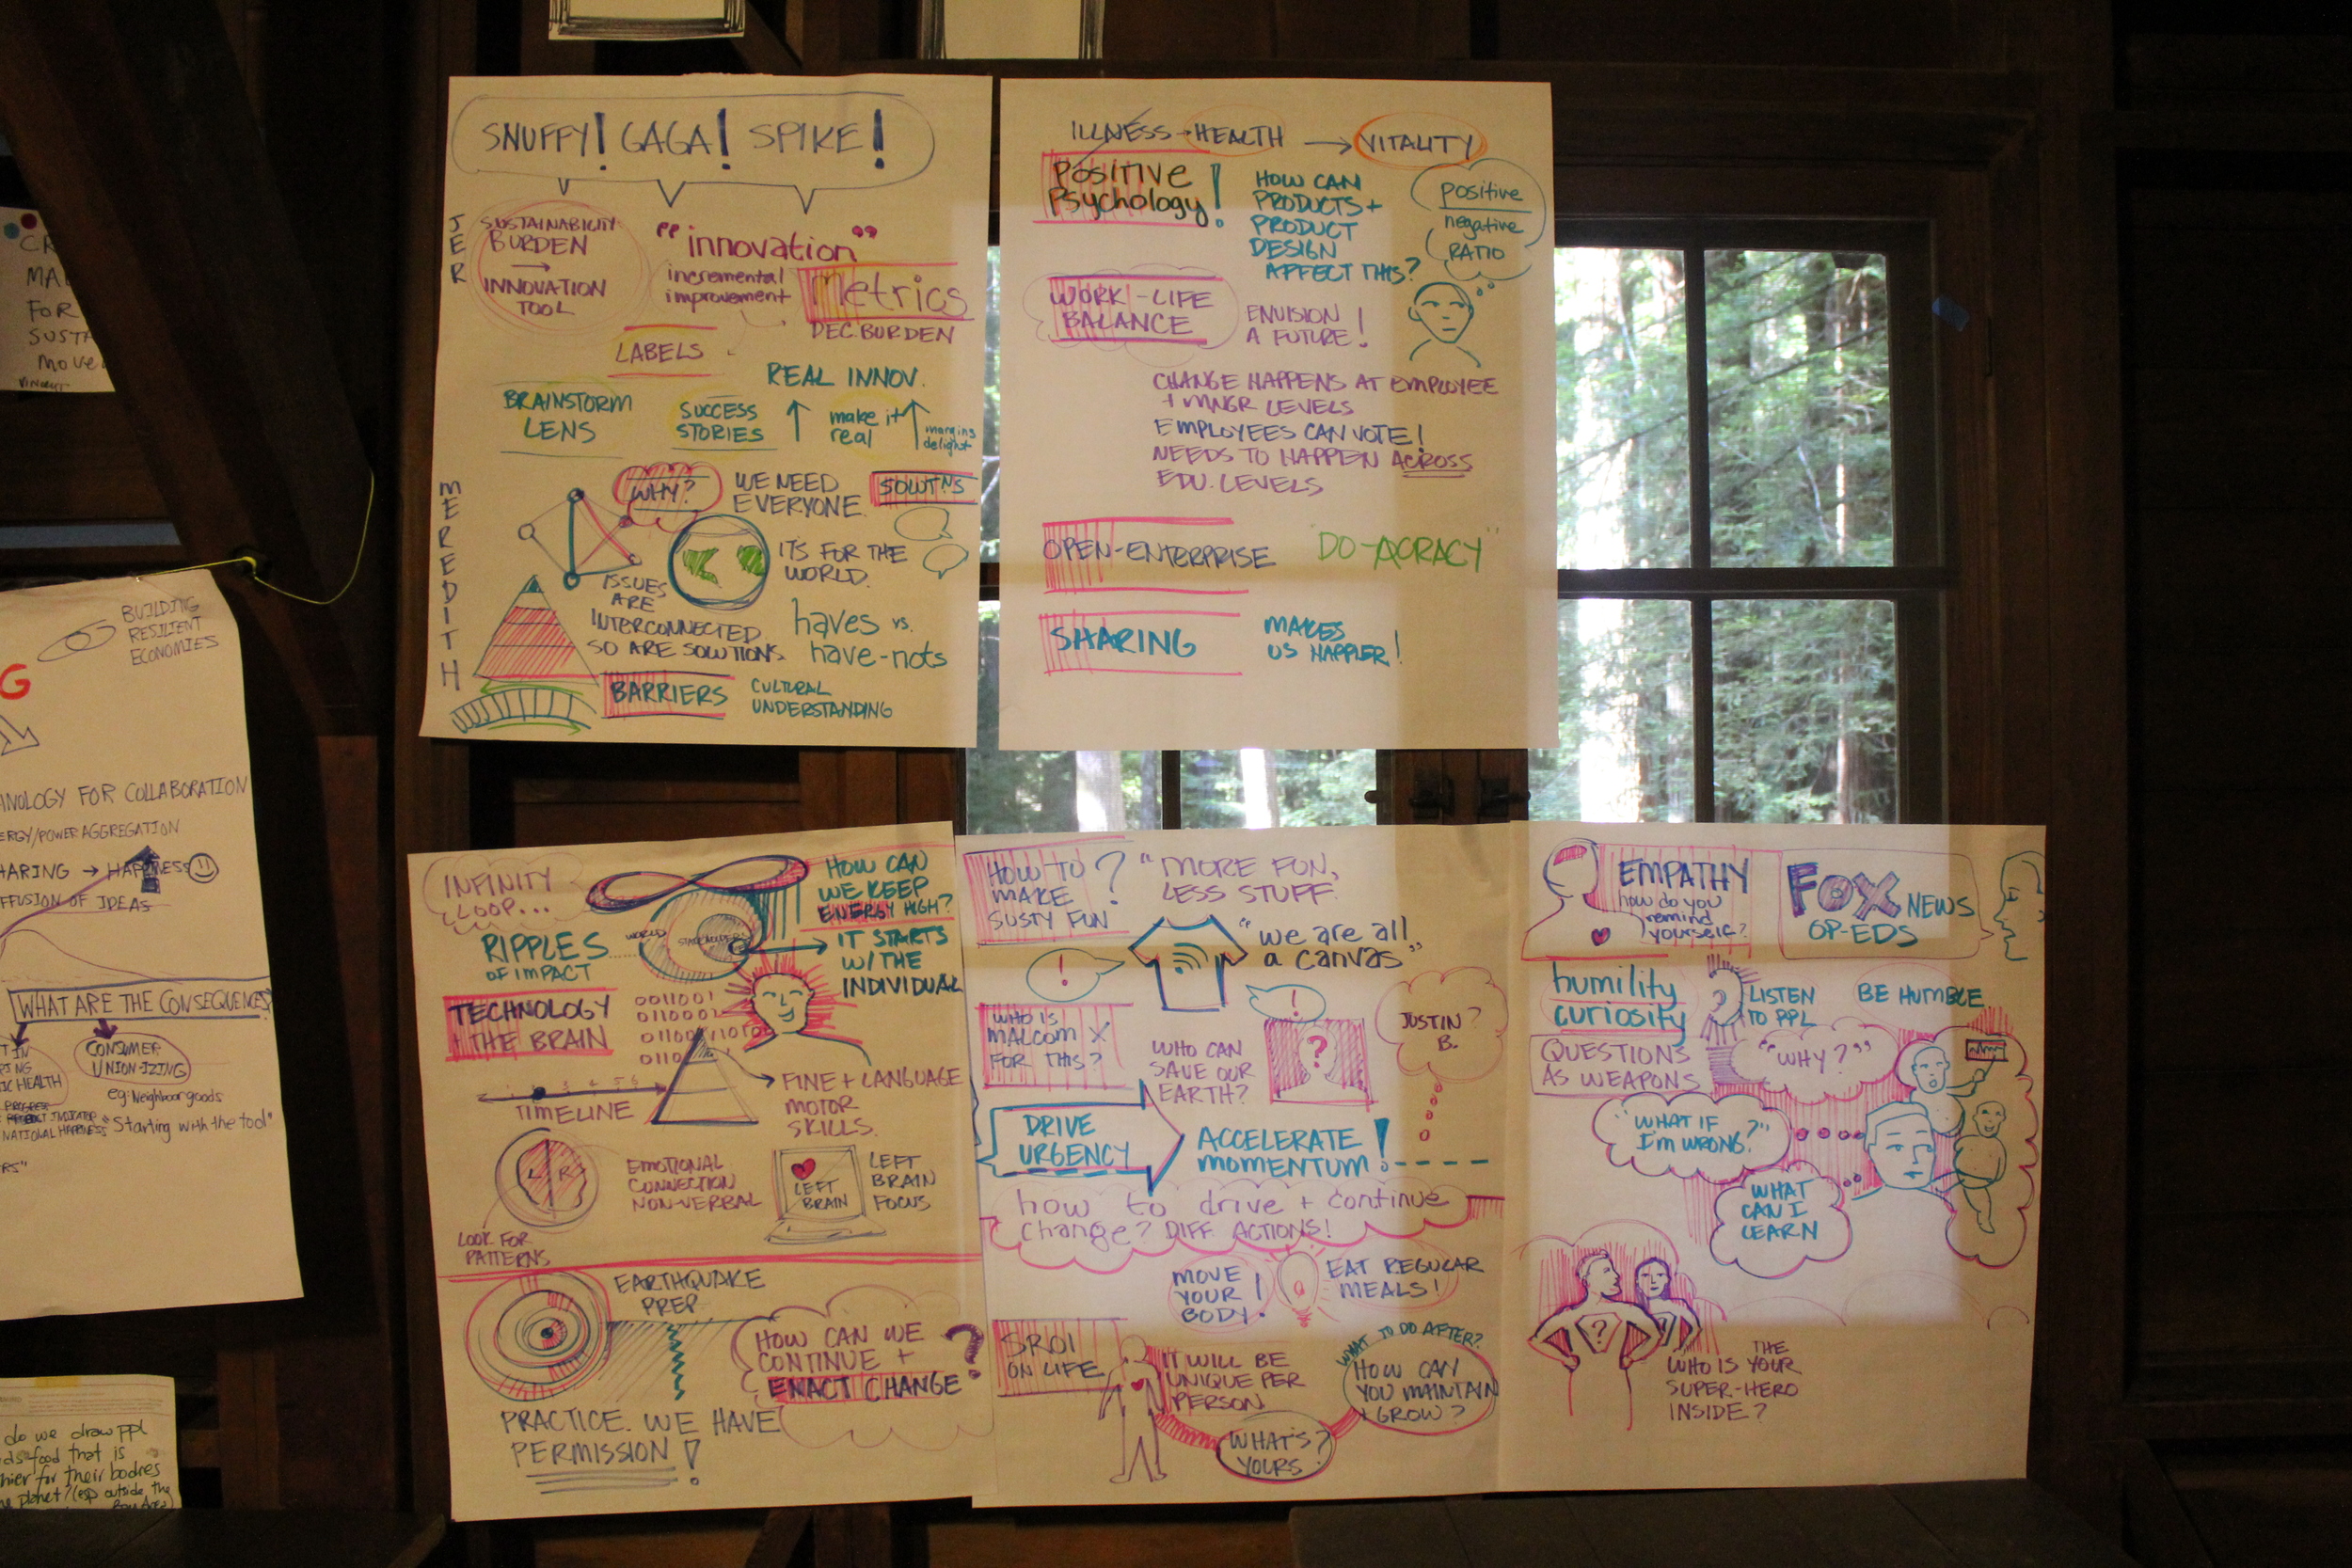 SNUFFY! GAGA! SPIKE!
JER
SUSTAINABILITY
BURDEN
→
INNOVATION
TOOL
"innovation"
incremental
improvement
Metrics
DEC. BURDEN
LABELS
REAL INNOV.
BRAINSTORM
LENS
SUCCESS
STORIES
make it
real
margins
delight
MEREDITH
WHY?
WE NEED
EVERYONE.
SOLUT'NS
IT'S FOR THE
WORLD.
ISSUES
ARE
INTERCONNECTED
SO ARE SOLUTIONS.
haves vs.
have-nots
BARRIERS
CULTURAL
UNDERSTANDING
ILLNESS → HEALTH → VITALITY
Positive
Psychology!
HOW CAN
PRODUCTS +
PRODUCT
DESIGN
AFFECT THIS?
positive
negative
RATIO
WORK-LIFE
BALANCE
ENVISION
A FUTURE!
CHANGE HAPPENS AT EMPLOYEE
+ MNGR LEVELS
EMPLOYEES CAN VOTE!
NEEDS TO HAPPEN ACROSS
EDU. LEVELS
OPEN-ENTERPRISE
"DO-ACRACY"
SHARING
MAKES
US HAPPIER!
CR
MA
FOR
SUST
Move
VINCENT
BUILDING
RESILIENT
ECONOMIES
G
NOLOGY FOR COLLABORATION
ERGY/POWER AGGREGATION
HARING → HAPPINESS
FFUSION OF IDEAS
WHAT ARE THE CONSEQUENCES
T IN
PING
IC HEALTH
CONSUMER
UNION-IZING
eg: Neighborgoods
INDICATOR
NATIONAL HAPPINESS
"Starting with the tool"
RS"
do we draw ppl
ds food that is
hier for their bodies
e planet? (esp outside the
Bay Area)
INFINITY
LOOP...
HOW CAN
WE KEEP
ENERGY HIGH?
RIPPLES
OF IMPACT
WORLD
STAKEHOLDERS
IT STARTS
W/ THE
INDIVIDUAL
TECHNOLOGY
+ THE BRAIN
0011001
0110001
01100110100
0110
TIMELINE
1 3 4 5 6
FINE + LANGUAGE
MOTOR
SKILLS.
L R
LOOK FOR
PATTERNS
EMOTIONAL
CONNECTION
NON-VERBAL
LEFT
BRAIN
LEFT
BRAIN
FOCUS
EARTHQUAKE
PREP
HOW CAN WE
CONTINUE +
ENACT CHANGE?
PRACTICE. WE HAVE
PERMISSION!
HOW TO
MAKE
SUSTY FUN?
"MORE FUN,
LESS STUFF.
!
"we are all
a canvas"
WHO IS
MALCOM X
FOR THIS?
!
WHO CAN
SAVE OUR
EARTH?
?
JUSTIN?
B.
DRIVE
URGENCY
ACCELERATE
MOMENTUM!
how to drive + continue
change? DIFF ACTIONS!
MOVE
YOUR
BODY!
EAT REGULAR
MEALS!
SROI
ON LIFE
IT WILL BE
UNIQUE PER
PERSON
WHAT'S
YOURS?
WHAT TO DO AFTER?
HOW CAN
YOU MAINTAIN
+ GROW?
EMPATHY
how do you
remind
yourself?
FOX NEWS
OP-EDS
humility
curiosity
LISTEN
TO PPL
BE HUMBLE
QUESTIONS
AS WEAPONS
"WHY?"
"WHAT IF
I'M WRONG?"
WHAT
CAN I
LEARN
?
THE
WHO IS YOUR
SUPER-HERO
INSIDE?